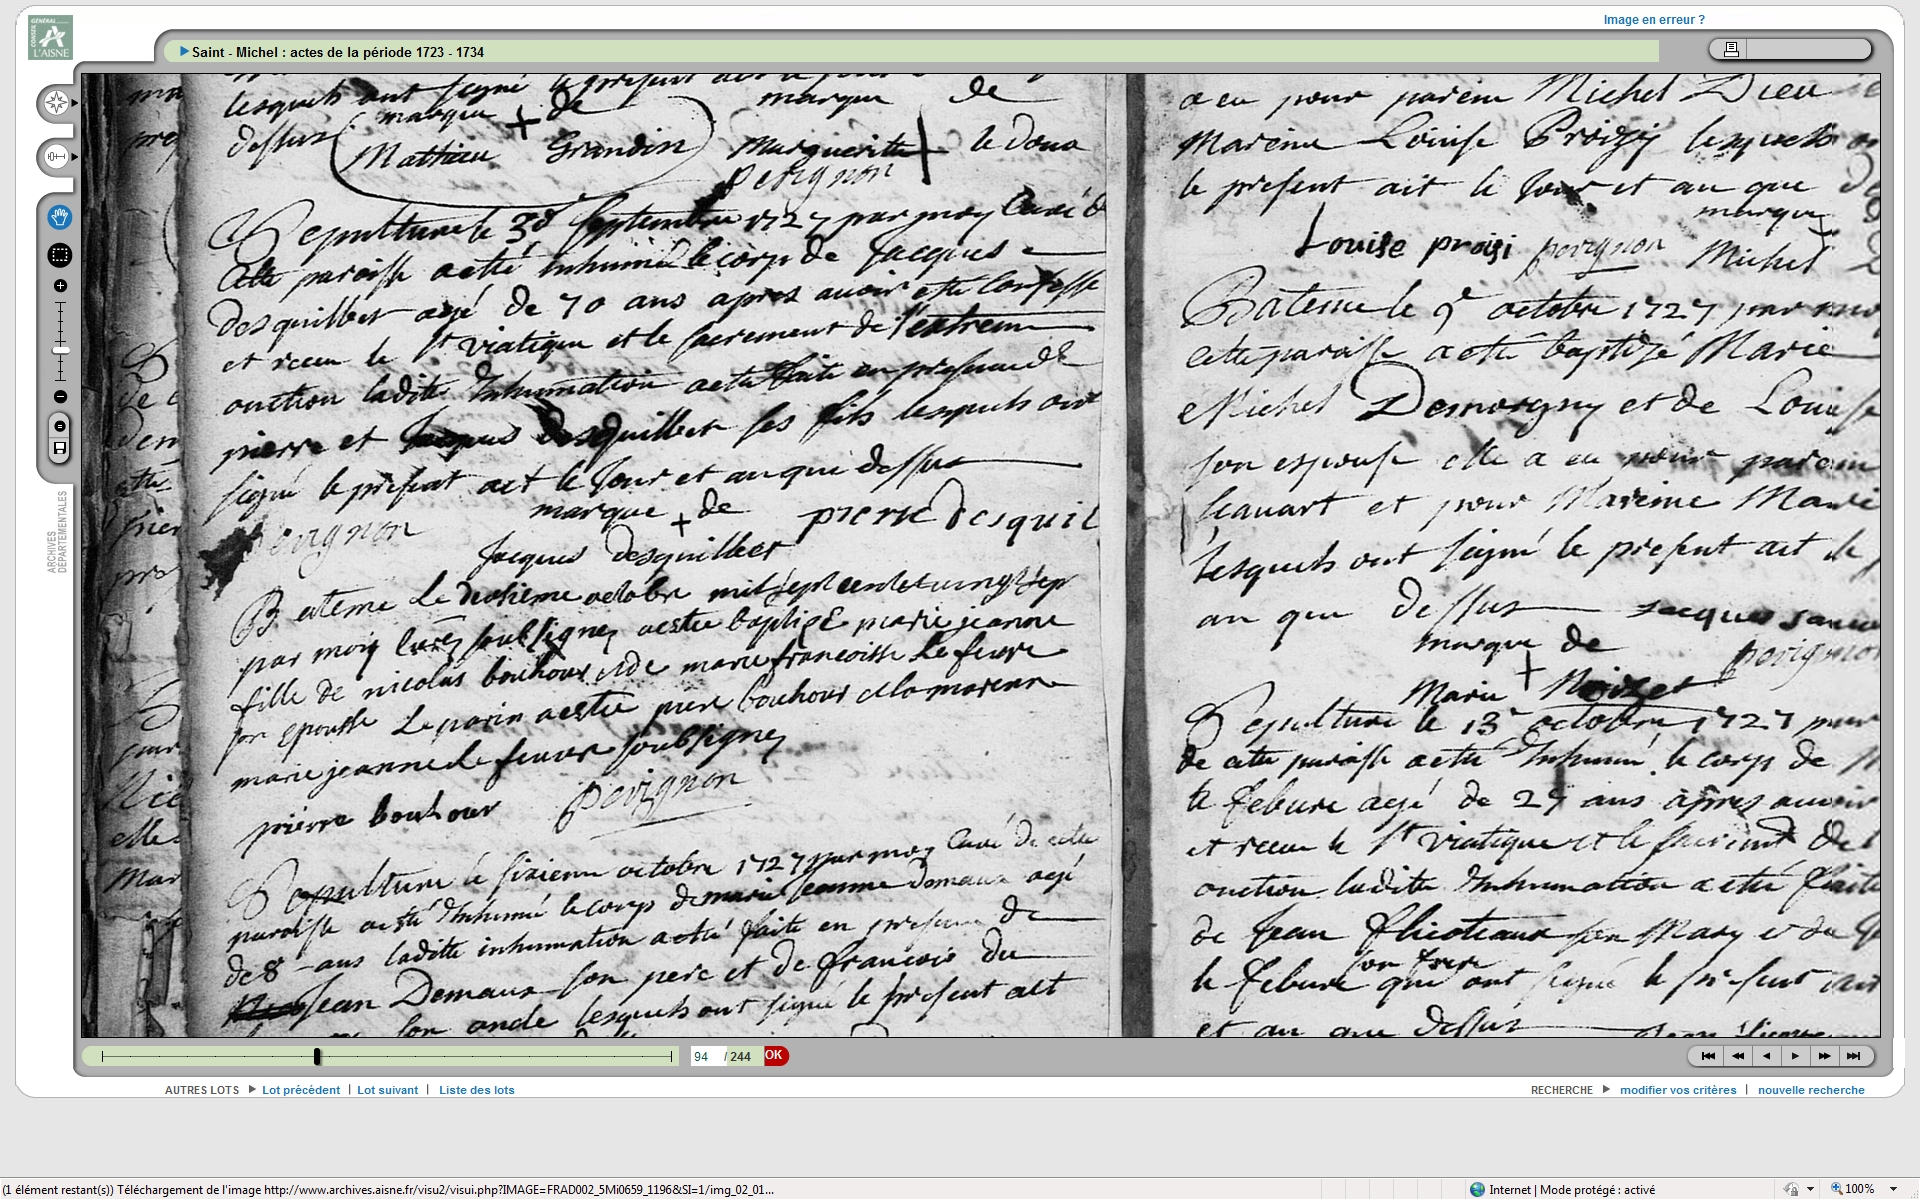 Image en erreur ?
CONSEIL GÉNÉRAL
L'AISNE
Saint - Michel : actes de la période 1723 - 1734
ARCHIVES
DÉPARTEMENTALES
lesquels ont signé le present act le jour
marque de marque de
dessus Mathieu Grandin Marguerite le Doux
povignon
Sepulture le 30e Septembre 1727 par moy Curé de
Cette paroisse a esté Inhumé le corp de Jacques
Desquilbet agé de 70 ans apres avoir esté Confesse
et receu le St viatique et le sacrement de l'extreme
onction ladite Inhumation a esté faite en presence de
pierre et Jacques Desquilbet ses fils lesquels ont
signé le present act le Jour et an que dessus
povignon marque de pierre desquil
Jacques Desquilbet
Bateme le deusieme octobre mil sept cent et vingt sep
par moy Curez soubsignez a estee baptisé marie jeanne
fille de nicolas bouhour et de marie francoisse Le feuvre
son epousse Le parin a estee piere bouhour et la marenne
marie jeanne le feuvre soubsignez
pierre bouhour povignon
Sepulture le sixiem octobre 1727 par moy Curé de cette
paroisse a esté Inhumé le corp de marie Jeanne Demaux agé
de 8 ans ladite inhumation a esté faite en presence de
Jean Demaux son pere et de francois du
son oncle lesquels ont signé le present act
a eu pour parein Michel Dieu
Mareine Louise Proizy lesquels on
le present act le Jour et an que de
marque
Louise proisi povignon Michel
Bateme le 9e octobre 1727 par moy
cette paroisse a esté baptizé Marie
Michel Demorgny et de Louise
son espouse elle a eu pour parein
seauart et pour Mareine Marie
lesquels ont signé le present act le
an que dessus Jacques
marque de povignon
Marie Noizet
Sepulture le 13e octobre 1727 par
de cette paroisse a esté Inhumé le corp de
le febure agé de 27 ans apres avoir
et receu le St viatique et le sacrement de l
onction ladite Inhumation a esté faite
de Jean flicoteaux son Mary et de
le febure son frere qui ont signé le present act
et an que dessus
94 / 244 OK
AUTRES LOTS Lot précédent | Lot suivant | Liste des lots
RECHERCHE modifier vos critères | nouvelle recherche
(1 élément restant(s)) Téléchargement de l'image http://www.archives.aisne.fr/visu2/visui.php?IMAGE=FRAD002_5Mi0659_1196&SI=1/img_02_01...
Internet | Mode protégé : activé
100%